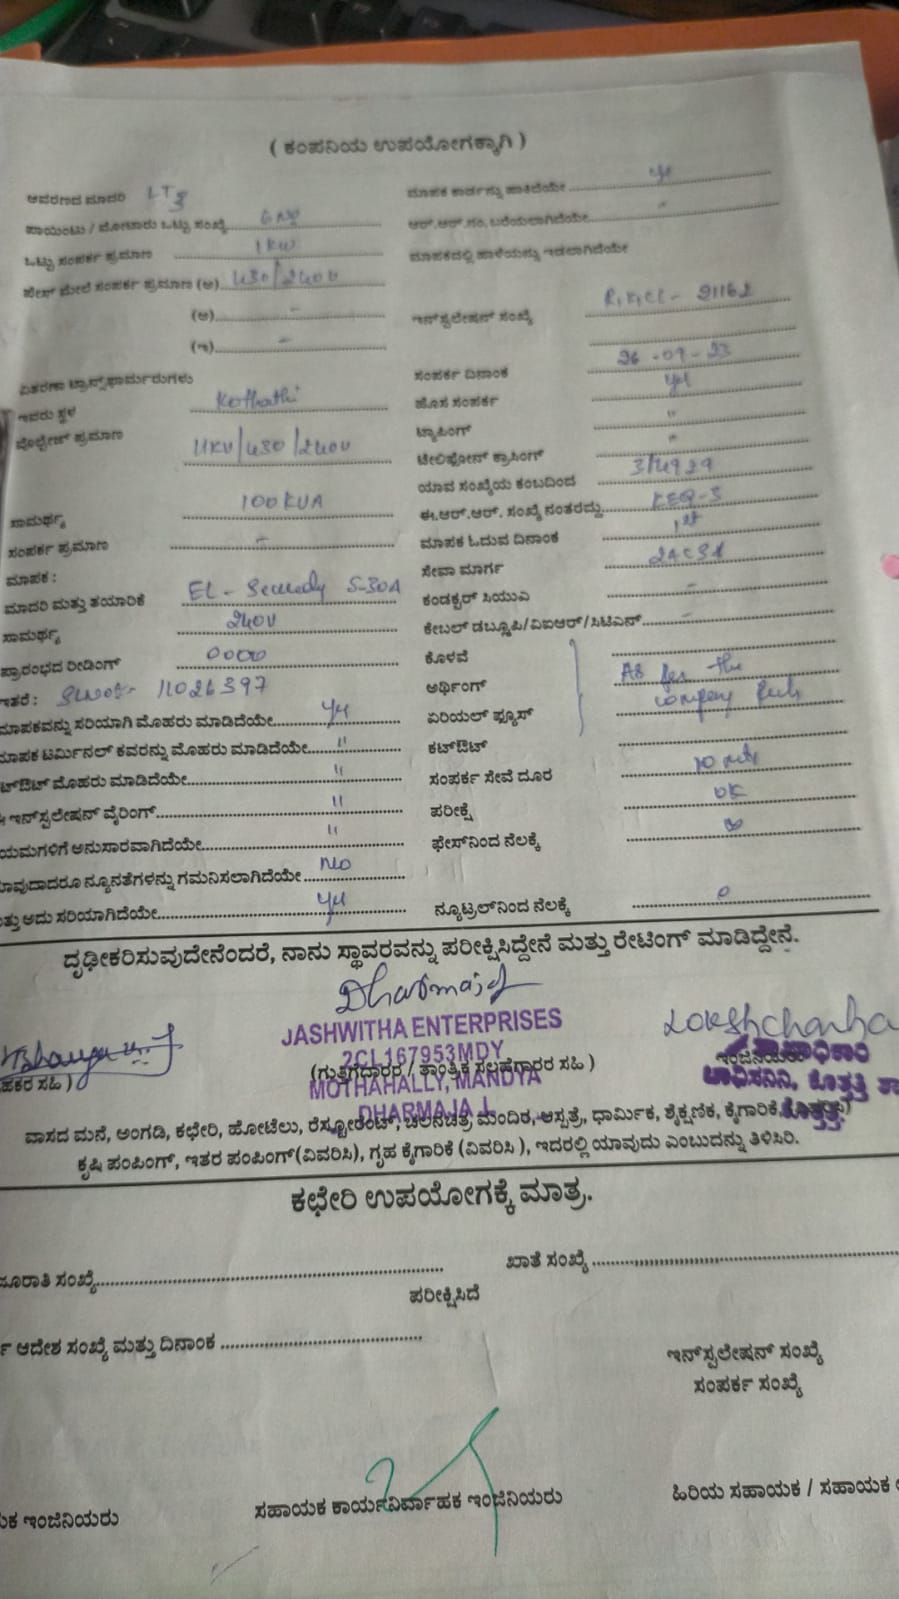 ( ಕಂಪನಿಯ ಉಪಯೋಗಕ್ಕಾಗಿ )
ಆವರಣದ ಮಾದರಿ LT3
ಪಾಯಿಂಟು / ಮೋಟಾರು ಒಟ್ಟು ಸಂಖ್ಯೆ
ಒಟ್ಟು ಸಂಪರ್ಕ ಪ್ರಮಾಣ 1KW
ಫೇಸ್ ಮೇಲೆ ಸಂಪರ್ಕ ಪ್ರಮಾಣ (ಅ) 430/240V
(ಆ) -
(ಇ) -
ವಿತರಣಾ ಟ್ರಾನ್ಸ್‌ಫಾರ್ಮರುಗಳು
ಇವರು ಸ್ಥಳ Kothathi
ವೋಲ್ಟೇಜ್ ಪ್ರಮಾಣ 11KV/430/240V
ಸಾಮರ್ಥ್ಯ 100KVA
ಸಂಪರ್ಕ ಪ್ರಮಾಣ -
ಮಾಪಕ :
ಮಾದರಿ ಮತ್ತು ತಯಾರಿಕೆ EL - 5-30A
ಸಾಮರ್ಥ್ಯ 240V
ಪ್ರಾರಂಭದ ರೀಡಿಂಗ್ 0000
ಇತರೆ : 11026397
ಮಾಪಕವನ್ನು ಸರಿಯಾಗಿ ಮೊಹರು ಮಾಡಿದೆಯೇ yes
ಮಾಪಕ ಟರ್ಮಿನಲ್ ಕವರನ್ನು ಮೊಹರು ಮಾಡಿದೆಯೇ "
ಮೊಹರು ಮಾಡಿದೆಯೇ "
ಇನ್‌ಸ್ಟಲೇಷನ್ ವೈರಿಂಗ್ "
ಅನುಸಾರವಾಗಿದೆಯೇ "
ನ್ಯೂನತೆಗಳನ್ನು ಗಮನಿಸಲಾಗಿದೆಯೇ No
ಅದು ಸರಿಯಾಗಿದೆಯೇ yes
ಮಾಪಕ ಕಾರ್ಡನ್ನು ಹಾಕಿದೆಯೇ yes
ಆರ್.ಆರ್.ನಂ. ಬರೆಯಲಾಗಿದೆಯೇ "
ಮಾಪಕದಲ್ಲಿ ಹಾಳೆಯನ್ನು ಇಡಲಾಗಿದೆಯೇ
ಇನ್‌ಸ್ಟಲೇಷನ್ ಸಂಖ್ಯೆ 21162
ಸಂಪರ್ಕ ದಿನಾಂಕ 26-07-23
ಹೊಸ ಸಂಪರ್ಕ yes
ಟ್ಯಾಪಿಂಗ್ "
ಟೆಲಿಫೋನ್ ಕ್ರಾಸಿಂಗ್ "
ಯಾವ ಸಂಖ್ಯೆಯ ಕಂಬದಿಂದ
ಈ.ಆರ್.ಆರ್. ಸಂಖ್ಯೆ ನಂತರದ್ದು
ಮಾಪಕ ಓದುವ ದಿನಾಂಕ 1st
ಸೇವಾ ಮಾರ್ಗ
ಕಂಡಕ್ಟರ್ ಸಿಯುಎ -
ಕೇಬಲ್ ಡಬ್ಲ್ಯೂಪಿ/ವಿಐಆರ್/ಸಿಟಿಎಸ್ -
ಕೊಳವೆ
ಅರ್ಥಿಂಗ್ As per the
ಏರಿಯಲ್ ಫ್ಯೂಸ್ company
ಕಟ್‌ಔಟ್
ಸಂಪರ್ಕ ಸೇವೆ ದೂರ 10
ಪರೀಕ್ಷೆ OK
ಫೇಸ್‌ನಿಂದ ನೆಲಕ್ಕೆ ∞
ನ್ಯೂಟ್ರಲ್‌ನಿಂದ ನೆಲಕ್ಕೆ 0
ದೃಢೀಕರಿಸುವುದೇನೆಂದರೆ, ನಾನು ಸ್ಥಾವರವನ್ನು ಪರೀಕ್ಷಿಸಿದ್ದೇನೆ ಮತ್ತು ರೇಟಿಂಗ್ ಮಾಡಿದ್ದೇನೆ.
JASHWITHA ENTERPRISES
2CL167953MDY
(ಗುತ್ತಿಗೆದಾರರ / ತಾಂತ್ರಿಕ ಸಲಹೆಗಾರರ ಸಹಿ )
MOTHAHALLY, MANDYA
DHARMAJA J.
ವಾಸದ ಮನೆ, ಅಂಗಡಿ, ಕಛೇರಿ, ಹೋಟೆಲು, ರೆಸ್ಟೋರೆಂಟ್, ಚಲನಚಿತ್ರ ಮಂದಿರ, ಆಸ್ಪತ್ರೆ, ಧಾರ್ಮಿಕ, ಶೈಕ್ಷಣಿಕ, ಕೈಗಾರಿಕೆ,
ಕೃಷಿ ಪಂಪಿಂಗ್, ಇತರ ಪಂಪಿಂಗ್(ವಿವರಿಸಿ), ಗೃಹ ಕೈಗಾರಿಕೆ (ವಿವರಿಸಿ ), ಇದರಲ್ಲಿ ಯಾವುದು ಎಂಬುದನ್ನು ತಿಳಿಸಿರಿ.
ಕಛೇರಿ ಉಪಯೋಗಕ್ಕೆ ಮಾತ್ರ.
ಸಂಖ್ಯೆ
ಖಾತೆ ಸಂಖ್ಯೆ
ಪರೀಕ್ಷಿಸಿದೆ
ಆದೇಶ ಸಂಖ್ಯೆ ಮತ್ತು ದಿನಾಂಕ
ಇನ್‌ಸ್ಟಲೇಷನ್ ಸಂಖ್ಯೆ
ಸಂಪರ್ಕ ಸಂಖ್ಯೆ
ಇಂಜಿನಿಯರು
ಸಹಾಯಕ ಕಾರ್ಯನಿರ್ವಾಹಕ ಇಂಜಿನಿಯರು
ಹಿರಿಯ ಸಹಾಯಕ / ಸಹಾಯಕ